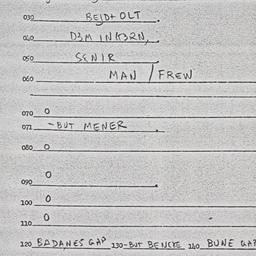 030 BEJD+ OLT.
040 D3M INK32N,.
050 SENIR.
060 MAN / FREW
070 O
071 -BUT MENER.
080 O
090 O.
100 O
110 O
120 EADANES GAP 130-BUT BENCKE 140 BUNE GAP